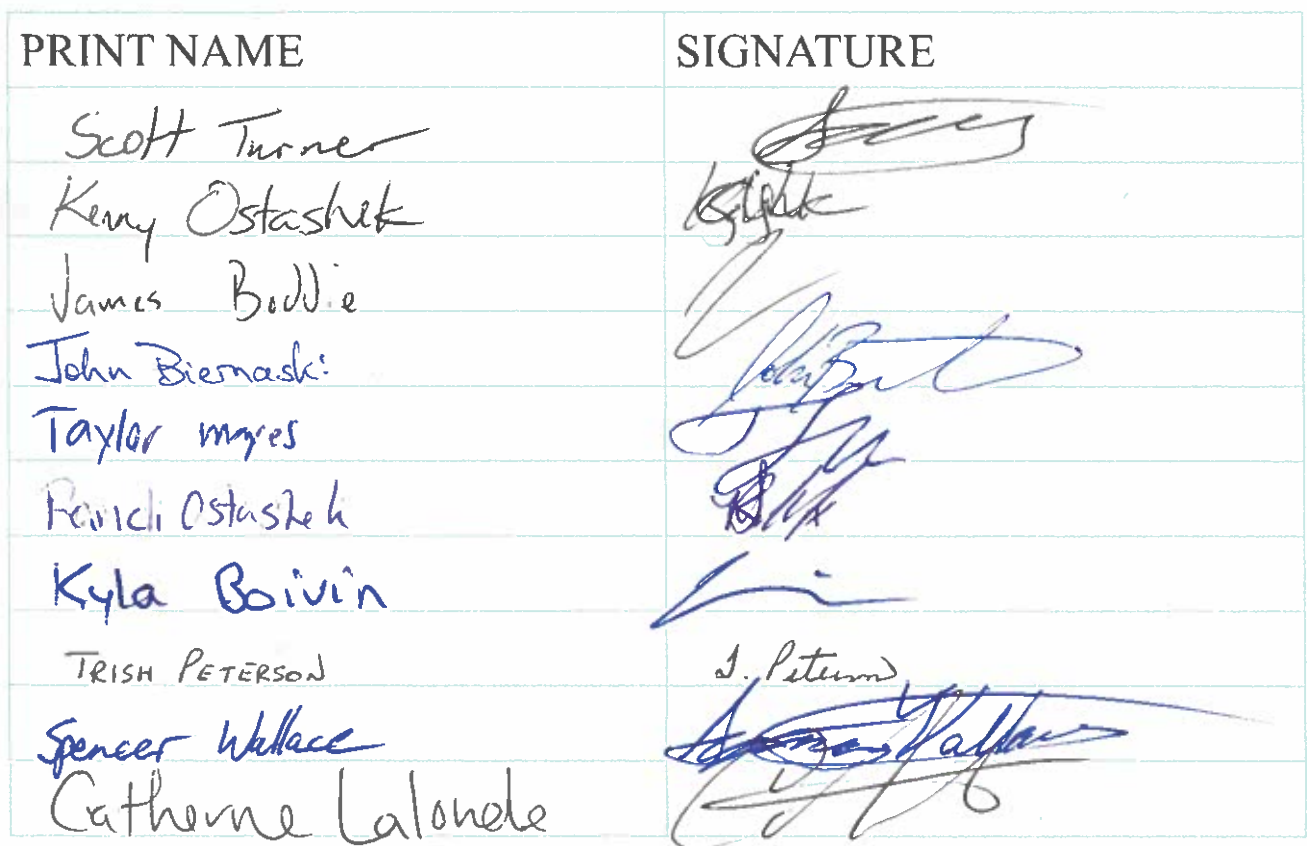 PRINT NAME SIGNATURE
Scott Turner
Kerry Ostashek
James Boddie
John Biernaski
Taylor
Ostashek
Kyla Boivin
TRISH PETERSON J. Peterson
Spencer Wallace Spencer Wallace
Catherine Lalonde